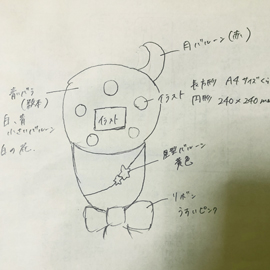 月バルーン(赤)
青バラ
(造木)
白、青
小さいバルーン
白の花
イラスト
イラスト
長方形 A4サイズくら
円形 240×240 m
星型バルーン
黄色
リボン
うすいピンク